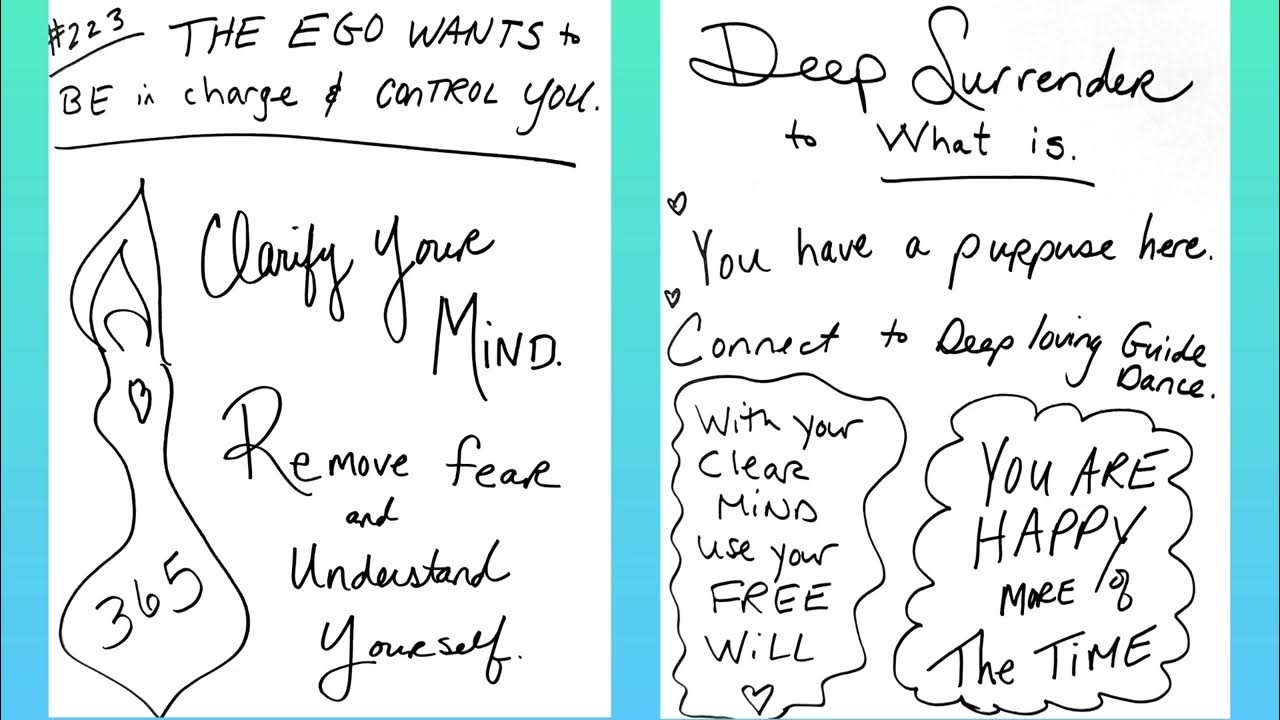 #223 THE EGO WANTS to
BE in charge & CONTROL YOU.
Clarify Your
MiND.
Remove fear
and
Understand
Yourself.
365
Deep Surrender
to What is.
You have a purpuse here.
Connect to Deep loving Guide
Dance.
With your
Clear
MiND
use your
FREE
WiLL
YOU ARE
HAPPY
MORE of
The TiME